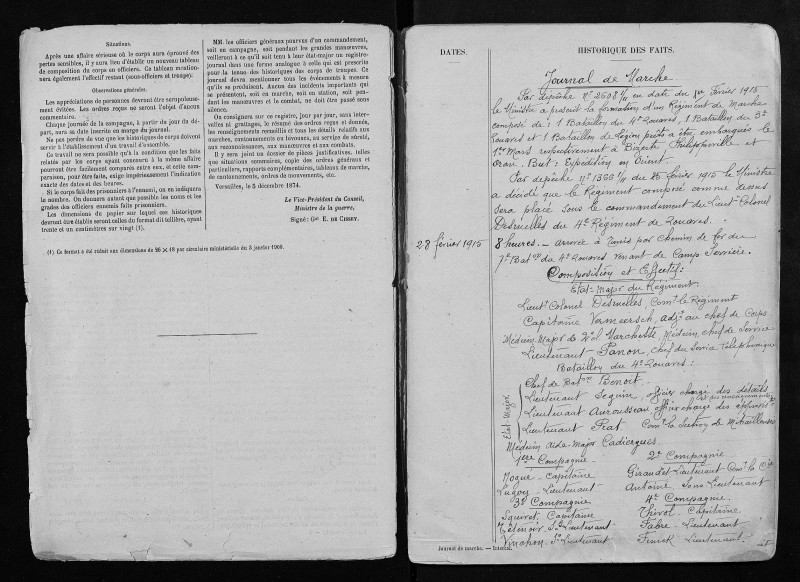 Situations.
Après une affaire sérieuse où le corps aura éprouvé des
pertes sensibles, il y aura lieu d'établir un nouveau tableau
de composition du corps en officiers. Ce tableau mention-
nera également l'effectif restant (sous-officiers et troupe).
Observations générales.
Les appréciations de personnes devront être scrupuleuse-
ment évitées. Les ordres reçus ne seront l'objet d'aucun
commentaire.
Chaque journée de la campagne, à partir du jour du dé-
part, aura sa date inscrite en marge du journal.
Ne pas perdre de vue que les historiques de corps doivent
servir à l'établissement d'un travail d'ensemble.
Ce travail ne sera possible qu'à la condition que les faits
relatés par les corps ayant concouru à la même affaire
pourront être facilement comparés entre eux, et cette com-
paraison, pour être faite, exige impérieusement l'indication
exacte des dates et des heures.
Si le corps fait des prisonniers à l'ennemi, on en indiquera
le nombre. On donnera autant que possible les noms et les
grades des officiers ennemis faits prisonniers.
Les dimensions du papier sur lequel ces historiques
devront être établis seront celles du format dit tellière, ayant
trente et un centimètres sur vingt (1).
(1) Ce format a été réduit aux dimensions de 26 × 18 par circulaire ministérielle du 3 janvier 1900.
MM. les officiers généraux pourvus d'un commandement,
soit en campagne, soit pendant les grandes manœuvres,
veilleront à ce qu'il soit tenu à leur état-major un registre-
journal dans une forme analogue à celle qui est prescrite
pour la tenue des historiques des corps de troupes. Ce
journal devra mentionner tous les événements à mesure
qu'ils se produiront. Aucun des incidents importants qui
se présentent, soit en marche, soit en station, soit pen-
dant les manœuvres et le combat, ne doit être passé sous
silence.
On consignera sur ce registre, jour par jour, sans inter-
valles ni grattages, le résumé des ordres reçus et donnés,
les renseignements recueillis et tous les détails relatifs aux
marches, cantonnements ou bivouacs, au service de sûreté,
aux reconnaissances, aux manœuvres et aux combats.
Il y sera joint un dossier de pièces justificatives, telles
que situations sommaires, copie des ordres généraux et
particuliers, rapports complémentaires, tableaux de marche,
de cantonnements, ordres de mouvements, etc.
Versailles, le 5 décembre 1874.
Le Vice-Président du Conseil,
Ministre de la guerre,
Signé : Gal E. DE CISSEY.
DATES.
HISTORIQUE DES FAITS.
Journal de Marche
Par dépêche N° 2508 1/11 en date du 1er Février 1915
le Ministre a prescrit la formation d'un Régiment de Marche
composé de : 1 Bataillon du 4e Zouaves, 1 Bataillon du 3e
Zouaves et 1 Bataillon de Légion prêts à être embarqués le
1er Mars respectivement à Bizerte Philippeville et
Oran. But : Expédition en Orient
Par dépêche N° 1366 1/11 du 26 février 1915 le Ministre
a décidé que le Régiment composé comme dessus
sera placé sous le commandement du Lieut-Colonel
Desruelles du 4e Régiment de Zouaves.
28 février 1915
8 heures. — arrivée à Tunis par chemin de fer du
7e Baton du 4e Zouaves venant de Camp Servière.
Composition et Effectif :
Etat-Major du Régiment
Lieut Colonel Desruelles, Comt le Régiment
Capitaine Vermeersch, adjt au chef de Corps
Médecin Major de 2e cl Marchette, Médecin, chef de Service
Lieutenant Panon, chef du Service Téléphonique
Bataillon du 4e Zouaves :
Etat-Major
Chef de Baton Benoit
Lieutenant Seguin, officier chargé des détails
Lieutenant Aurousseau officier chargé des approvts
Lieutenant Prat Comt la Section de Mitrailleuses
Médecin aide-major Cadiergues
1ère Compagnie
2e Compagnie
Nogue - Capitaine
Giraudet Lieutenant Comt la Cie
Lugoy - Lieutenant
Antoine Sous Lieutenant
3e Compagnie
4e Compagnie.
Squivet, Capitaine
Thirol Capitaine
S/Lieutenant
Fabre - Lieutenant
Vinchon, S/Lieutenant
Finck - Lieutenant
Journal de marche. — Intercal.